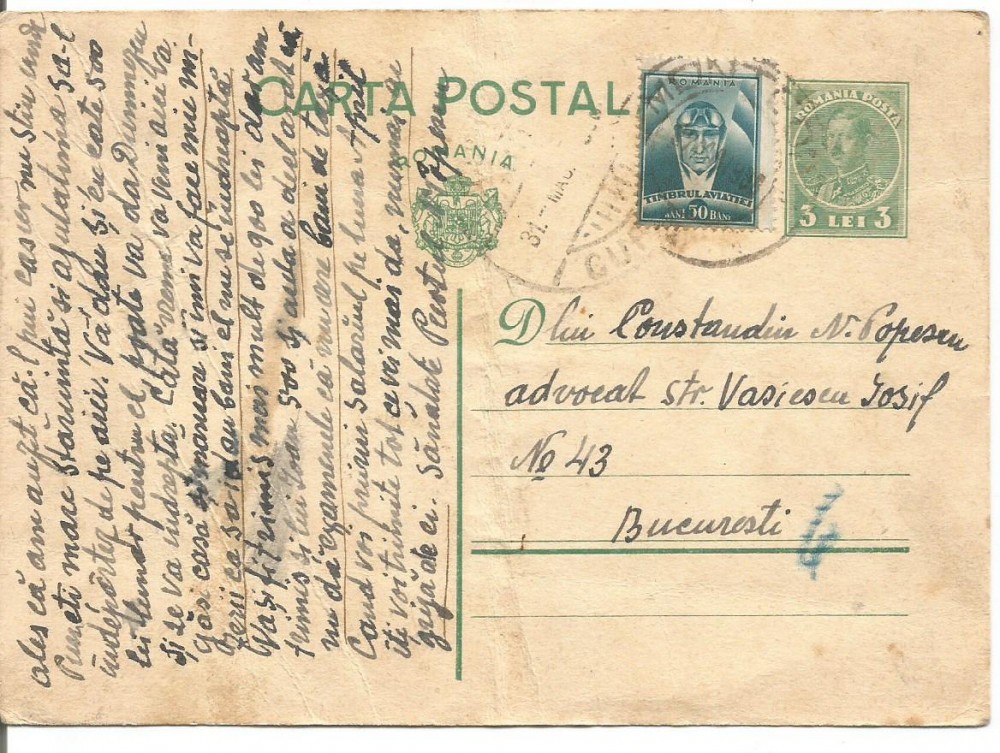 CARTA POSTALĂ
ROMANIA
ROMANIA
TIMBRUL AVIAȚIEI
BANI 50 BANI
ROMANIA POSTA
3 LEI 3
Dlui Constandin N. Popescu
advocat str. Vasiescu Iosif
No 43
Bucuresti
ales că am auzit că-l pui casier nu știu unde
Puneti mare stăruință si agutatimă sa-l
îndepărtez de pe aici. Vă dau și eu cate 500
lei lunar pentru el poate va da Dumnezeu
și se va îndrepta. Cată vreme va veni aici va
găsi casă și mâncau si imi va face mi-
zerii ca să-i dau bani el nu se îndreaptă
Vasi fi trimis mai mult de 900 lei dar am
trimis și lui Dan 500 și avula a deslarat că
nu dă examenele că nu are bani de taxă
Cand voi primi salariul pe luna April
iti voi trimite tot ce vei mai da, numai au
grijă de ei. Sănătate